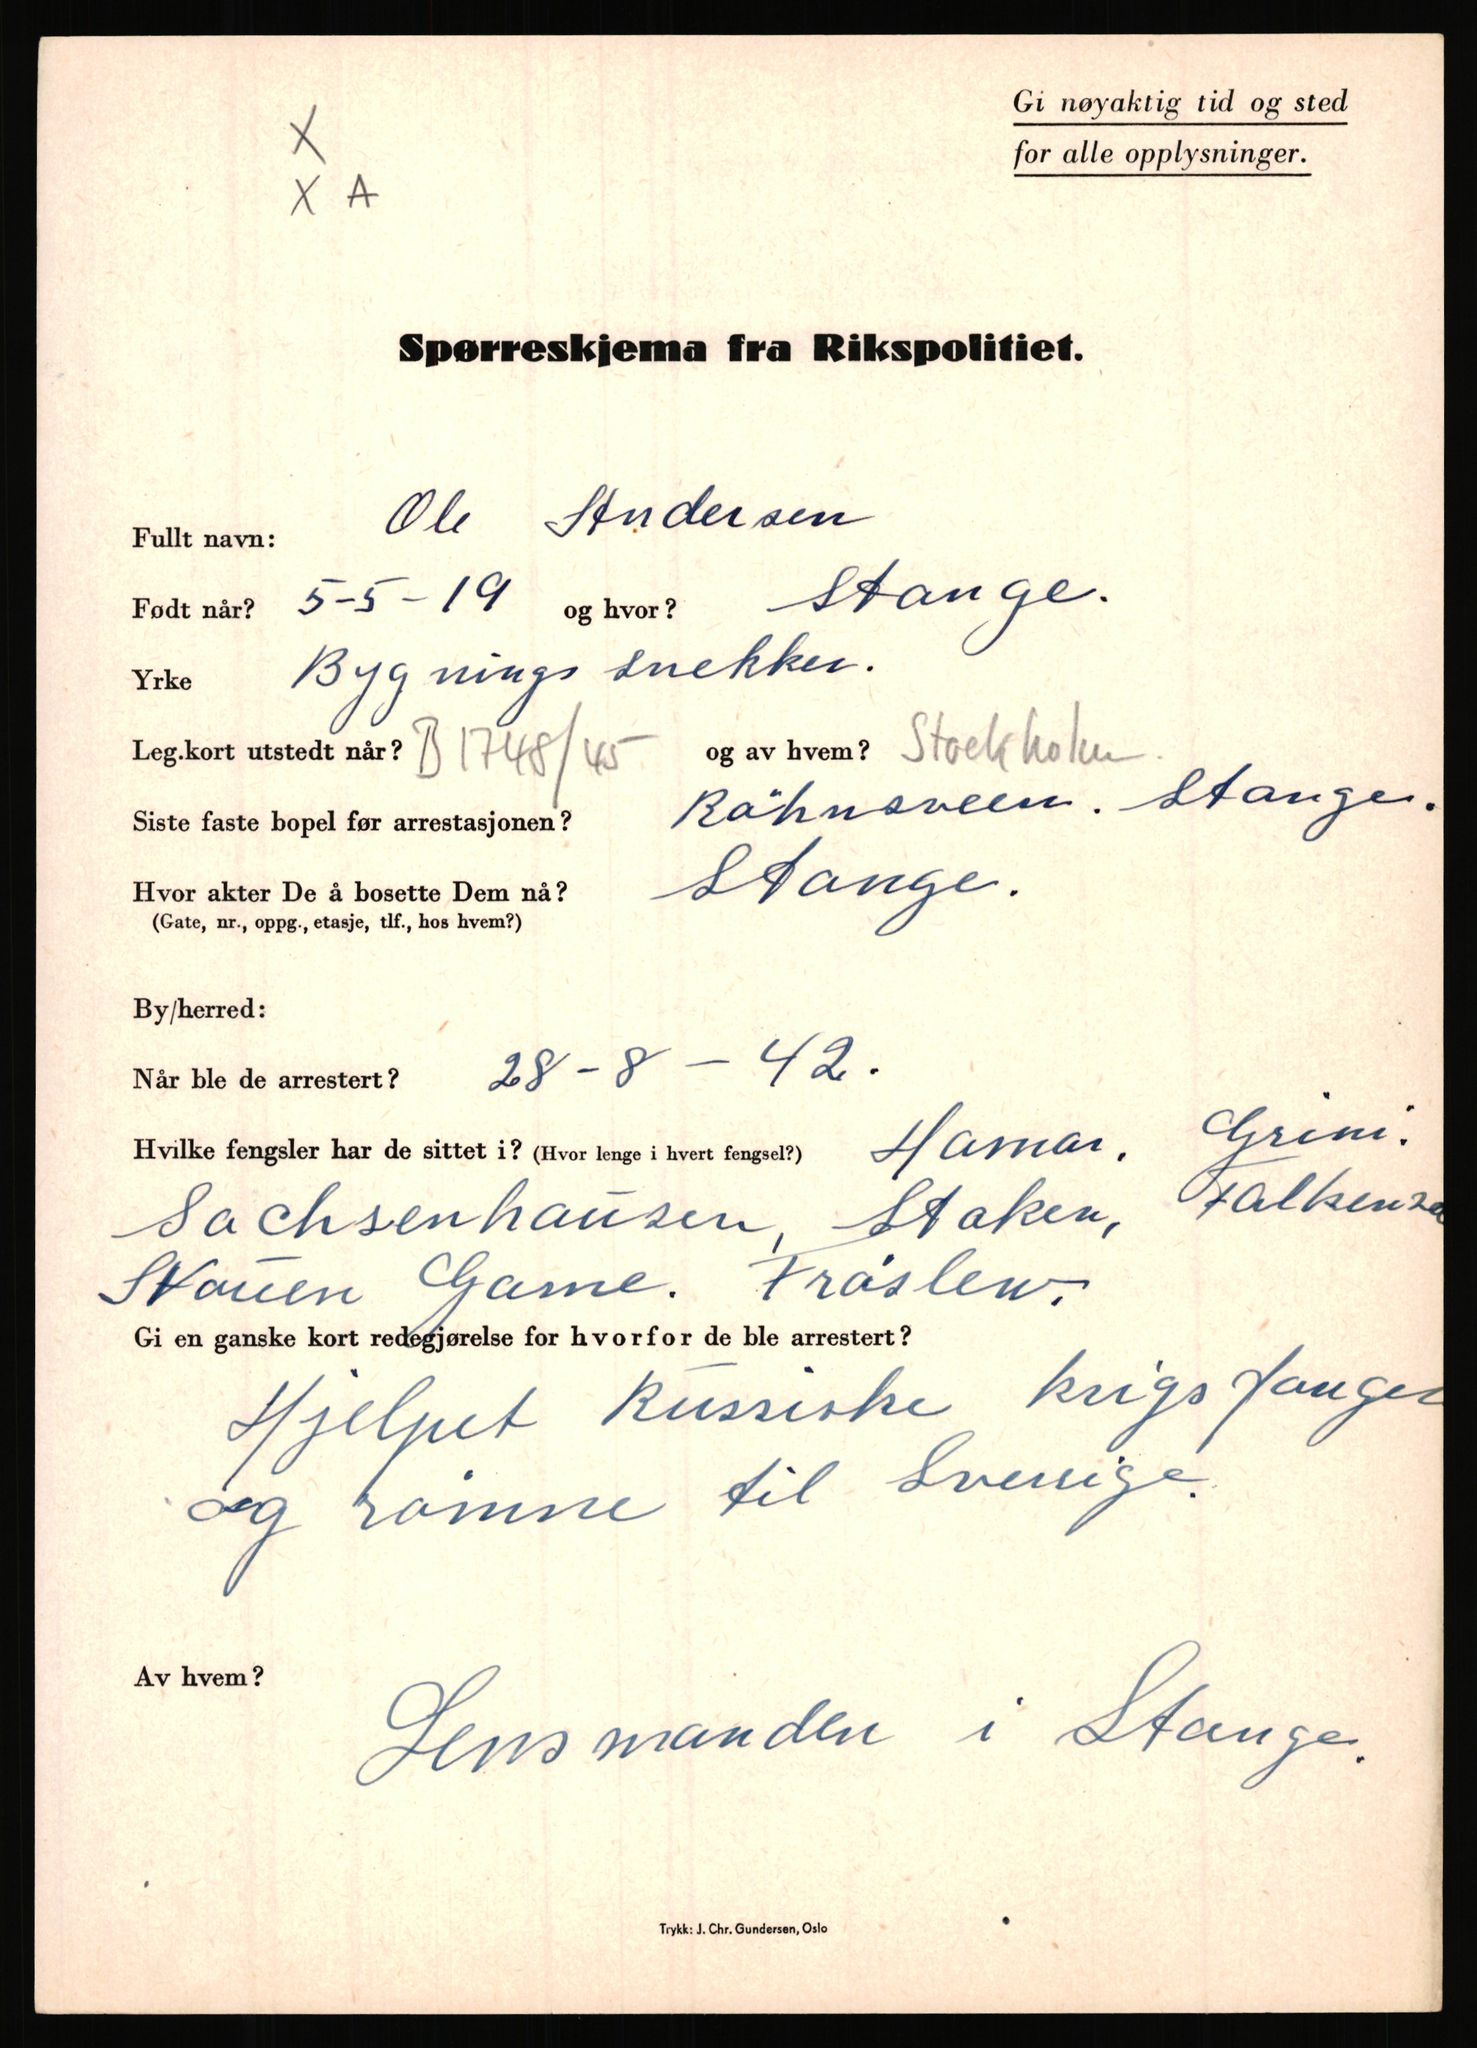 Gi nøyaktig tid og sted
for alle opplysninger.
X
X A
Spørreskjema fra Rikspolitiet.
Fullt navn: Ole Andersen
Født når? 5-5-19 og hvor? Stange.
Yrke Bygningssnekker.
Leg.kort utstedt når? B1748/45 og av hvem? Stockholm
Siste faste bopel før arrestasjonen? Råhnsveen. Stange.
Hvor akter De å bosette Dem nå? Stange.
(Gate, nr., oppg., etasje, tlf., hos hvem?)
By/herred:
Når ble de arrestert? 28-8-42.
Hvilke fengsler har de sittet i? (Hvor lenge i hvert fengsel?) Hamar. Grini.
Sachsenhausen, Staken,
Game. Fröslew.
Gi en ganske kort redegjørelse for hvorfor de ble arrestert?
Hjelpet Russiske krigsfanger
og römne til Sverrige.
Av hvem?
Lensmanden i Stange.
Trykk: J. Chr. Gundersen, Oslo